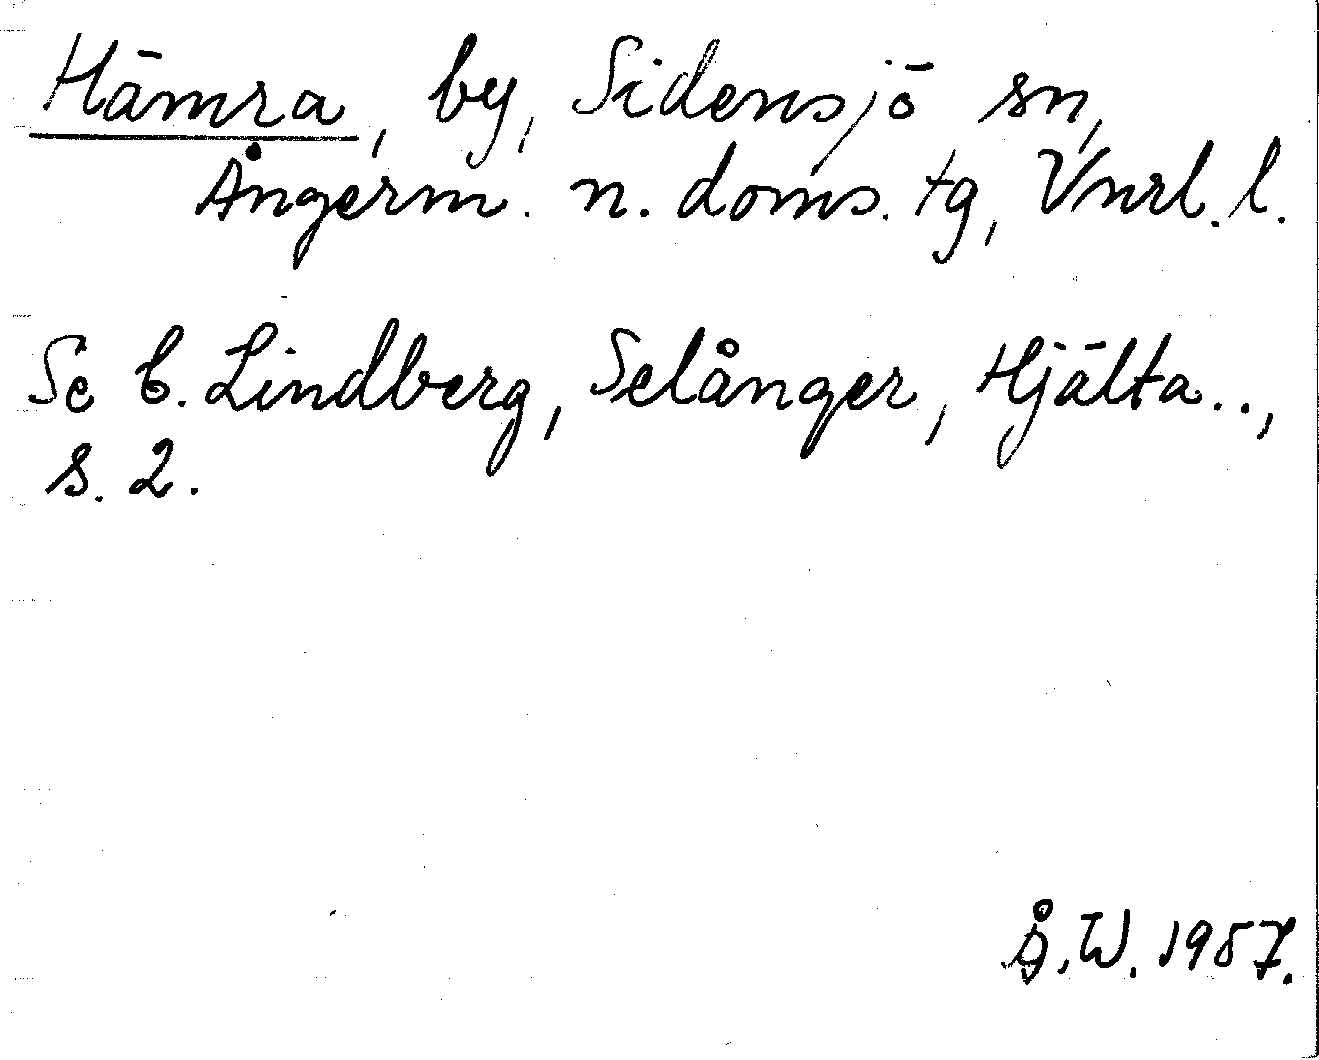 Hämra, by, Sidensjö sn,
Ångerm. n. doms. tg, Vnrl. l.
Se C. Lindberg, Selånger, Hjälta..,
s. 2.
Å.W. 1957.